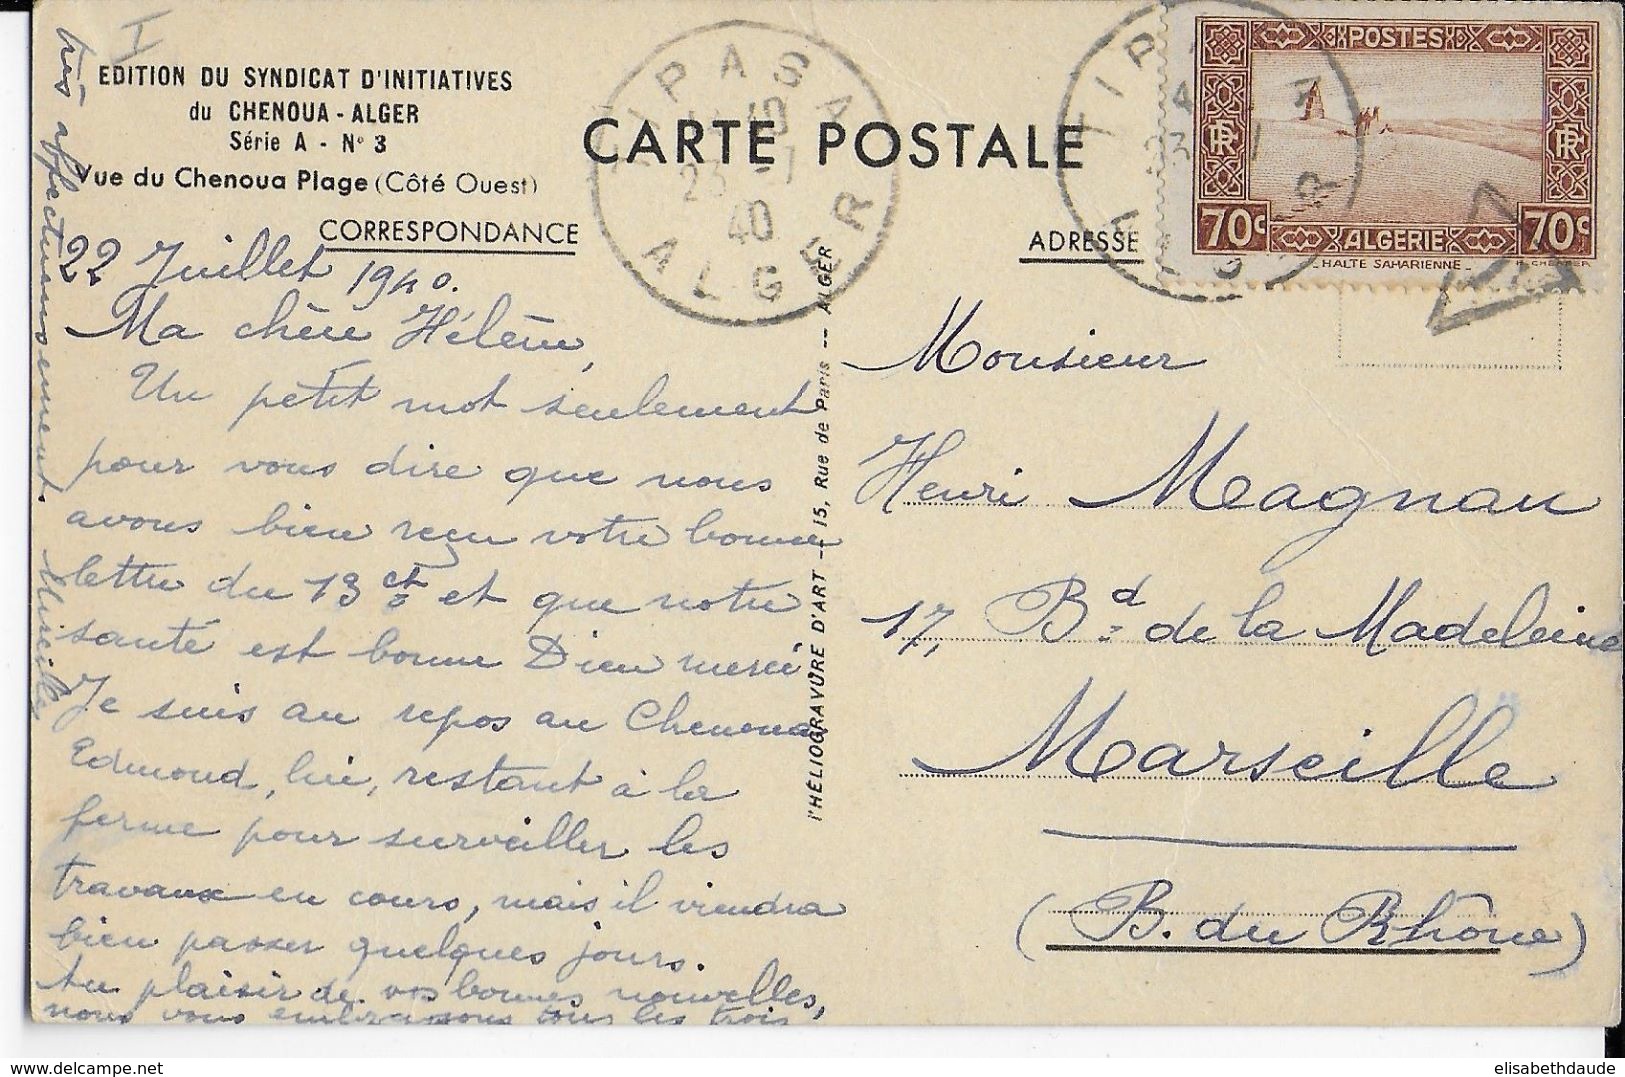 EDITION DU SYNDICAT D'INITIATIVES
du CHENOUA - ALGER
Série A - N° 3
Vue du Chenoua Plage (Côté Ouest)
CARTE POSTALE
CORRESPONDANCE
ADRESSE
TIPASA
23 -7
40
ALGER
POSTES
RF
RF
70c
ALGERIE
70c
HALTE SAHARIENNE
22 Juillet 1940.
Ma chère Hélène,
Un petit mot seulement
pour vous dire que nous
avons bien reçu votre bonne
lettre du 13 ct et que notre
santé est bonne Dieu merci
Je suis au repos au Chenoua
Edmond, lui, restant à la
ferme pour surveiller les
travaux en cours, mais il viendra
bien passer quelques jours.
Au plaisir de vos bonnes nouvelles,
nous vous embrassons tous les trois
très affectueusement. Mireille
l'HÉLIOGRAVURE D'ART - 15, Rue de Paris -- ALGER
Monsieur
Henri Magnan
17, Bd de la Madeleine
Marseille
(B. du Rhône)
elisabethdaude